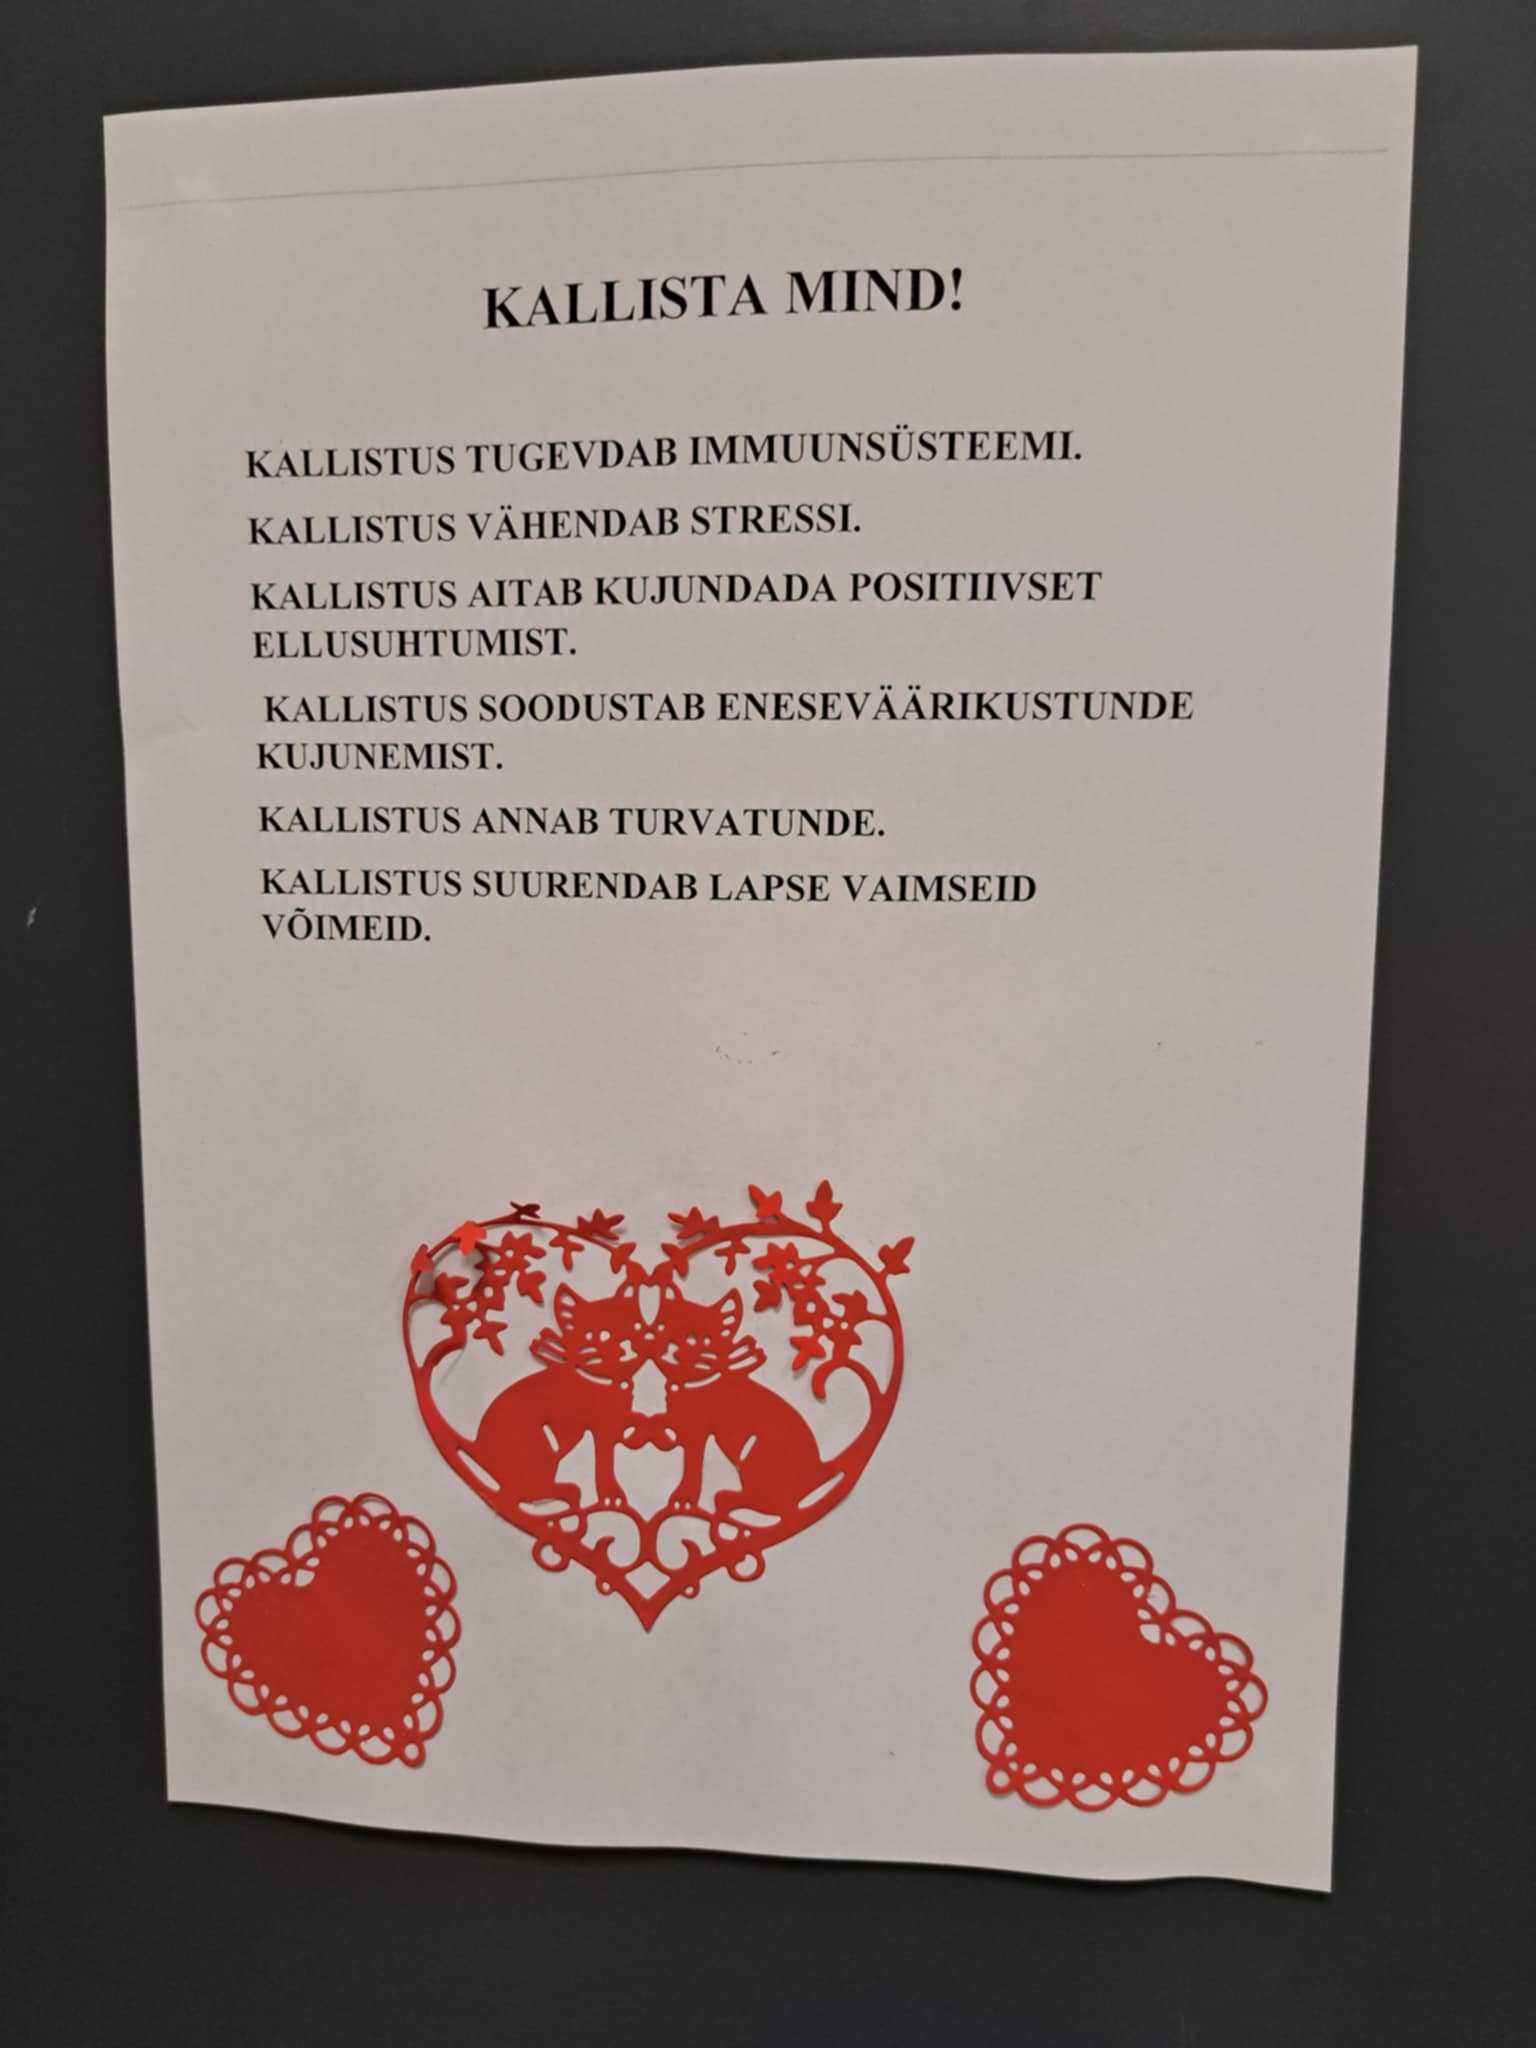 KALLISTA MIND!
KALLISTUS TUGEVDAB IMMUUNSÜSTEEMI.
KALLISTUS VÄHENDAB STRESSI.
KALLISTUS AITAB KUJUNDADA POSITIIVSET
ELLUSUHTUMIST.
KALLISTUS SOODUSTAB ENESEVÄÄRIKUSTUNDE
KUJUNEMIST.
KALLISTUS ANNAB TURVATUNDE.
KALLISTUS SUURENDAB LAPSE VAIMSEID
VÕIMEID.